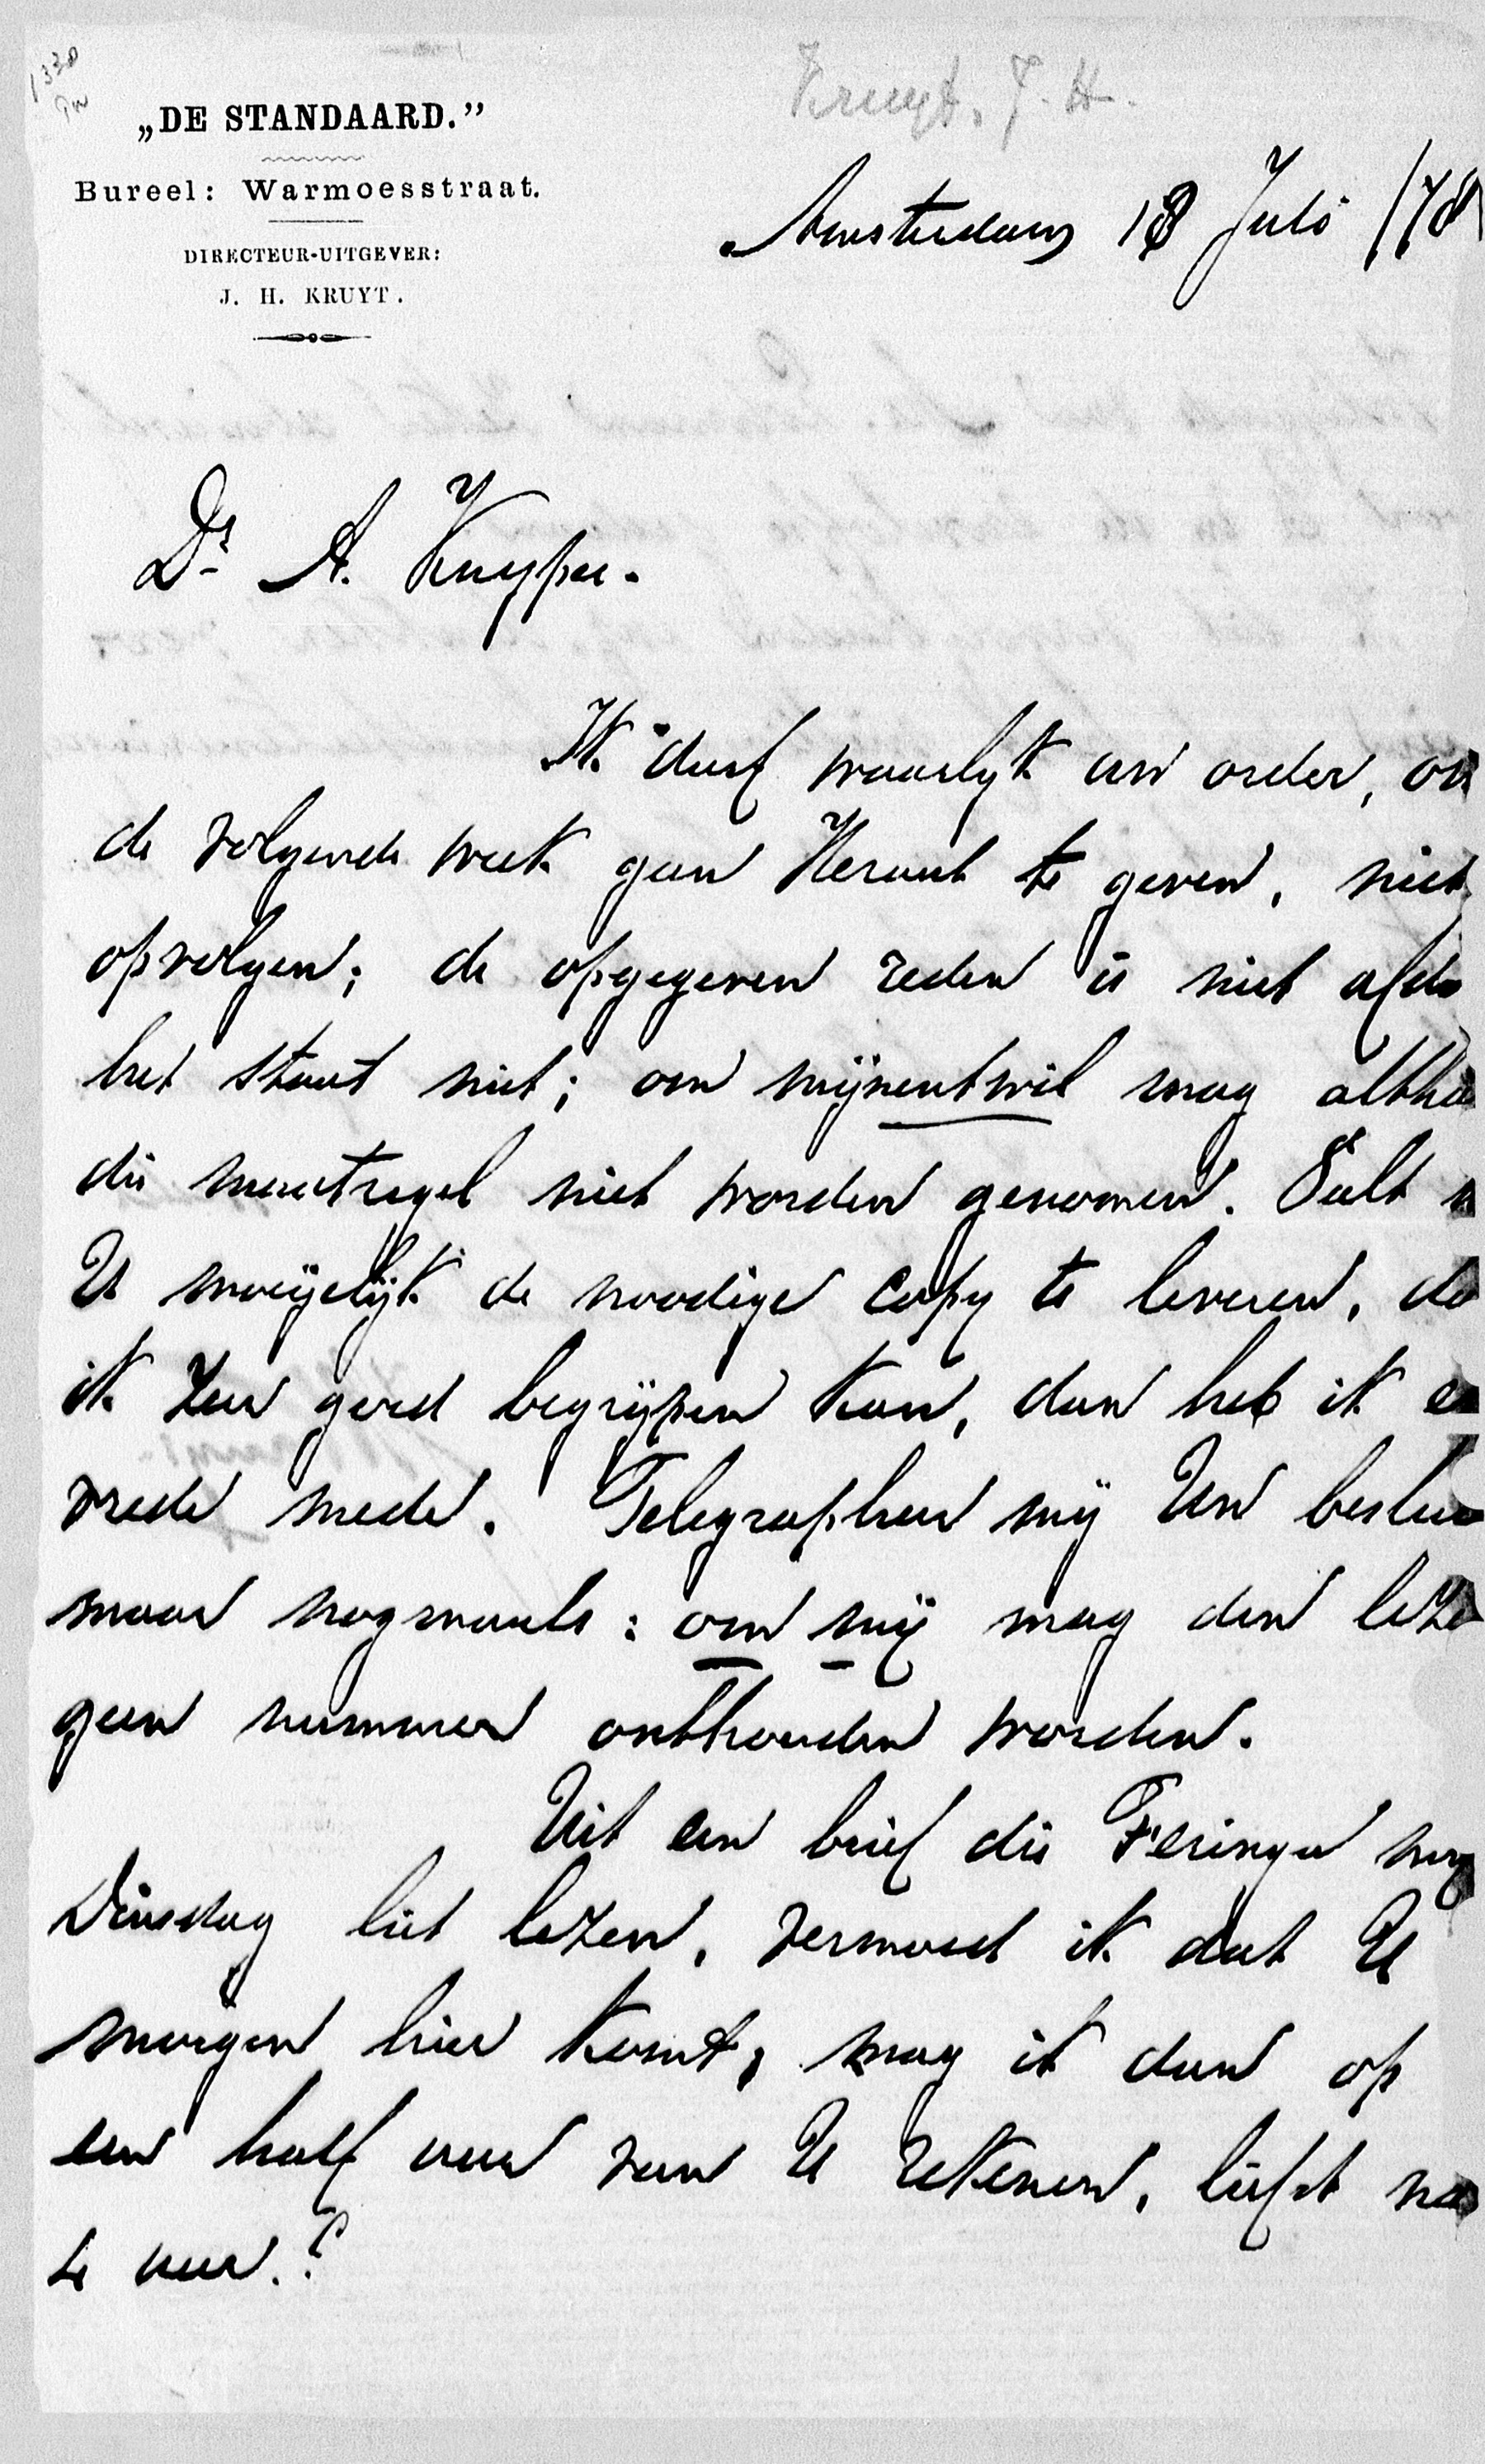 1338
Kruyt, J. H.
„DE STANDAARD.”
Bureel: Warmoesstraat.
DIRECTEUR-UITGEVER:
J. H. KRUYT.
Amsterdam 18 Juli /78
Dr A. Kuyper.
Ik durf waarlyk uw order, om
de volgende week geen Heraut te geven, niet
opvolgen; de opgegeven reden is niet afdo
het staat niet; om mijnentwil mag altha
die maatregel niet worden genomen. Valt
U moeijelijk de noodige copy te leveren, da
ik zeer goed begrijpen kan, dan heb ik e
vrede mede. Telegrapheer mij Uw beslui
maar nogmaals: om mij mag den leze
geen nummer onthouden worden.
Uit een brief die Feringa my
Dinsdag liet lezen, vermoed ik dat U
morgen hier komt, mag ik dan op
een half uur van U rekenen, liefst na
4 uur.?